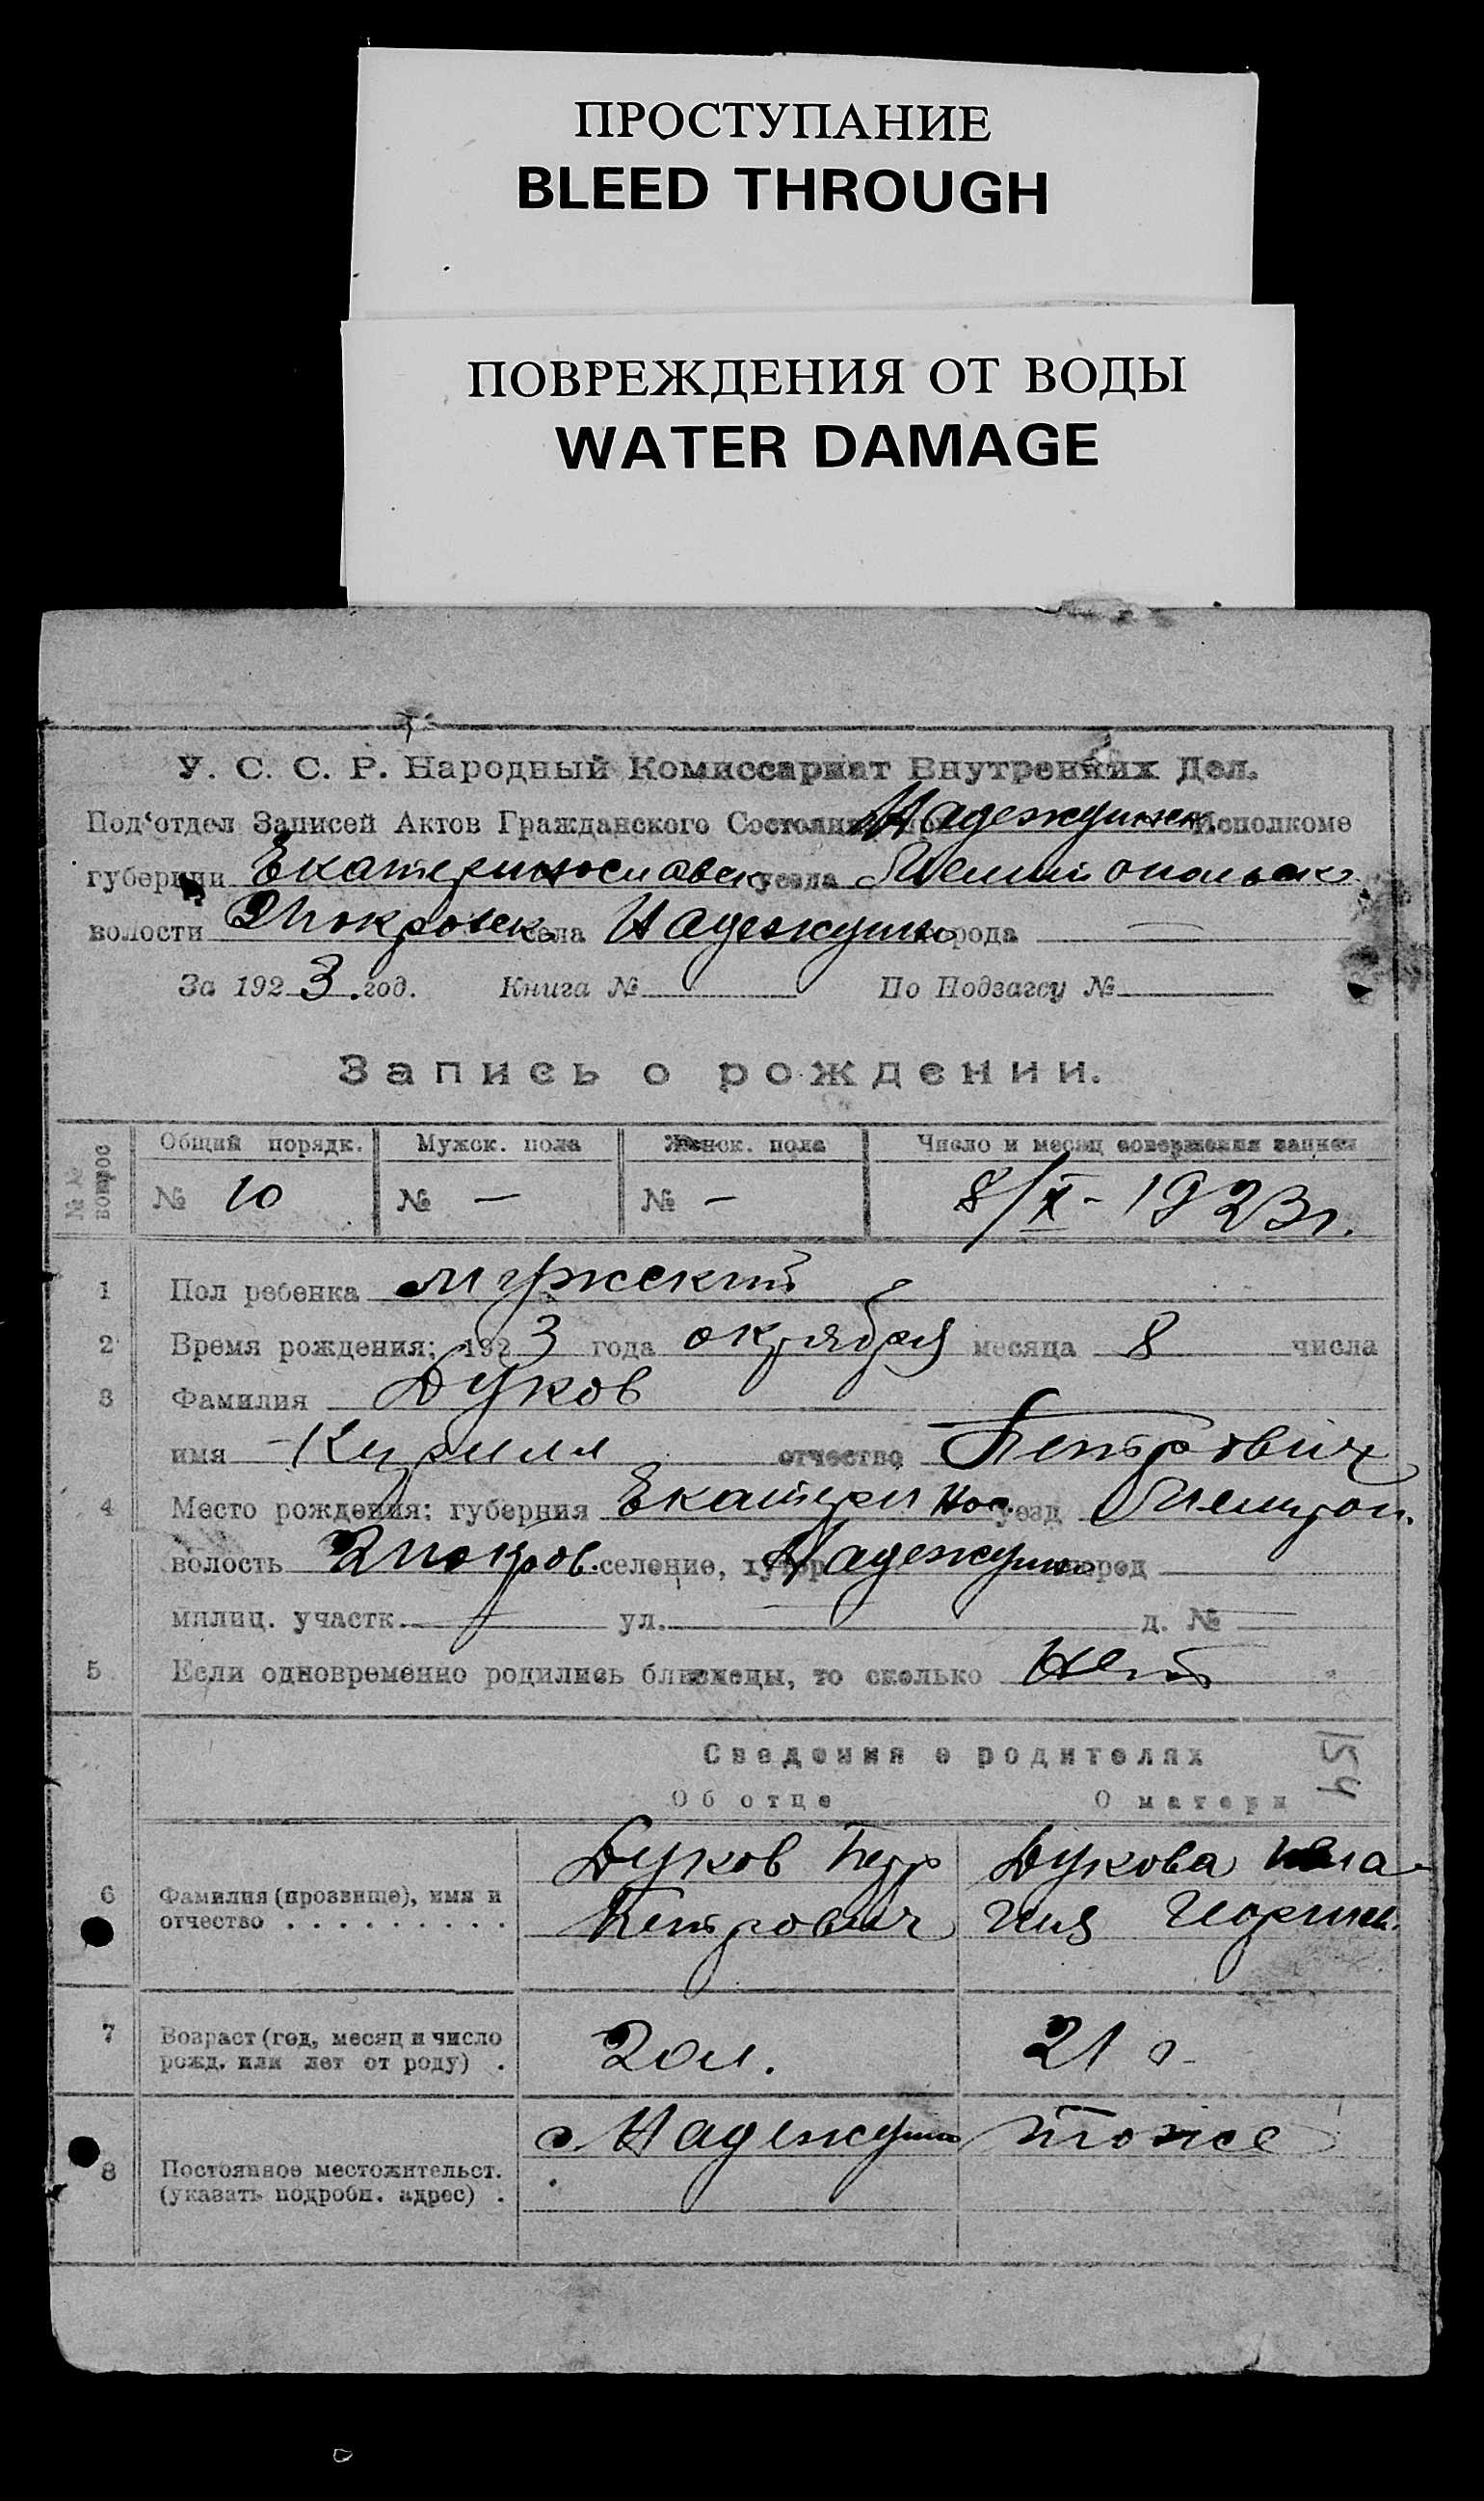 ПРОСТУПАНИЕ
BLEED THROUGH
ПОВРЕЖДЕНИЯ ОТ ВОДЫ
WATER DAMAGE
У. С. С. Р. Народный Комиссариат Внутренних Дел.
Под'отдел Записей Актов Гражданского Состояния при Надеждинск. Исполкоме
губернии Екатеринославск уезда Мелитопольск
волости 2 Покровск. села Надеждино города —
За 1923 год. Книга № По Подзагсу №
Запись о рождении.
№№ вопрос Общий порядк. Мужск. пола Женск. пола Число и месяц совершения записи
№ 10 № — № — 8/X - 1923 г.
1 Пол ребенка мужский
2 Время рождения: 1923 года октября месяца 8 числа
3 Фамилия Дуков
имя Кирилл отчество Петрович
4 Место рождения: губерния Екатеринос. уезд Мелитоп.
волость 2 Покров. селение, хутор Надеждино город
милиц. участк. — ул. — д. № —
5 Если одновременно родились близнецы, то сколько нет
Сведения о родителях
154
Об отце О матери
Дуков Петр Дукова
6 Фамилия (прозвище), имя и
отчество . . . . . . . . . Петрович
7 Возраст (год, месяц и число
рожд. или лет от роду) . 20 л. 21 г.
с. Надеждино тоже
8 Постоянное местожительст.
(указать подробн. адрес) .